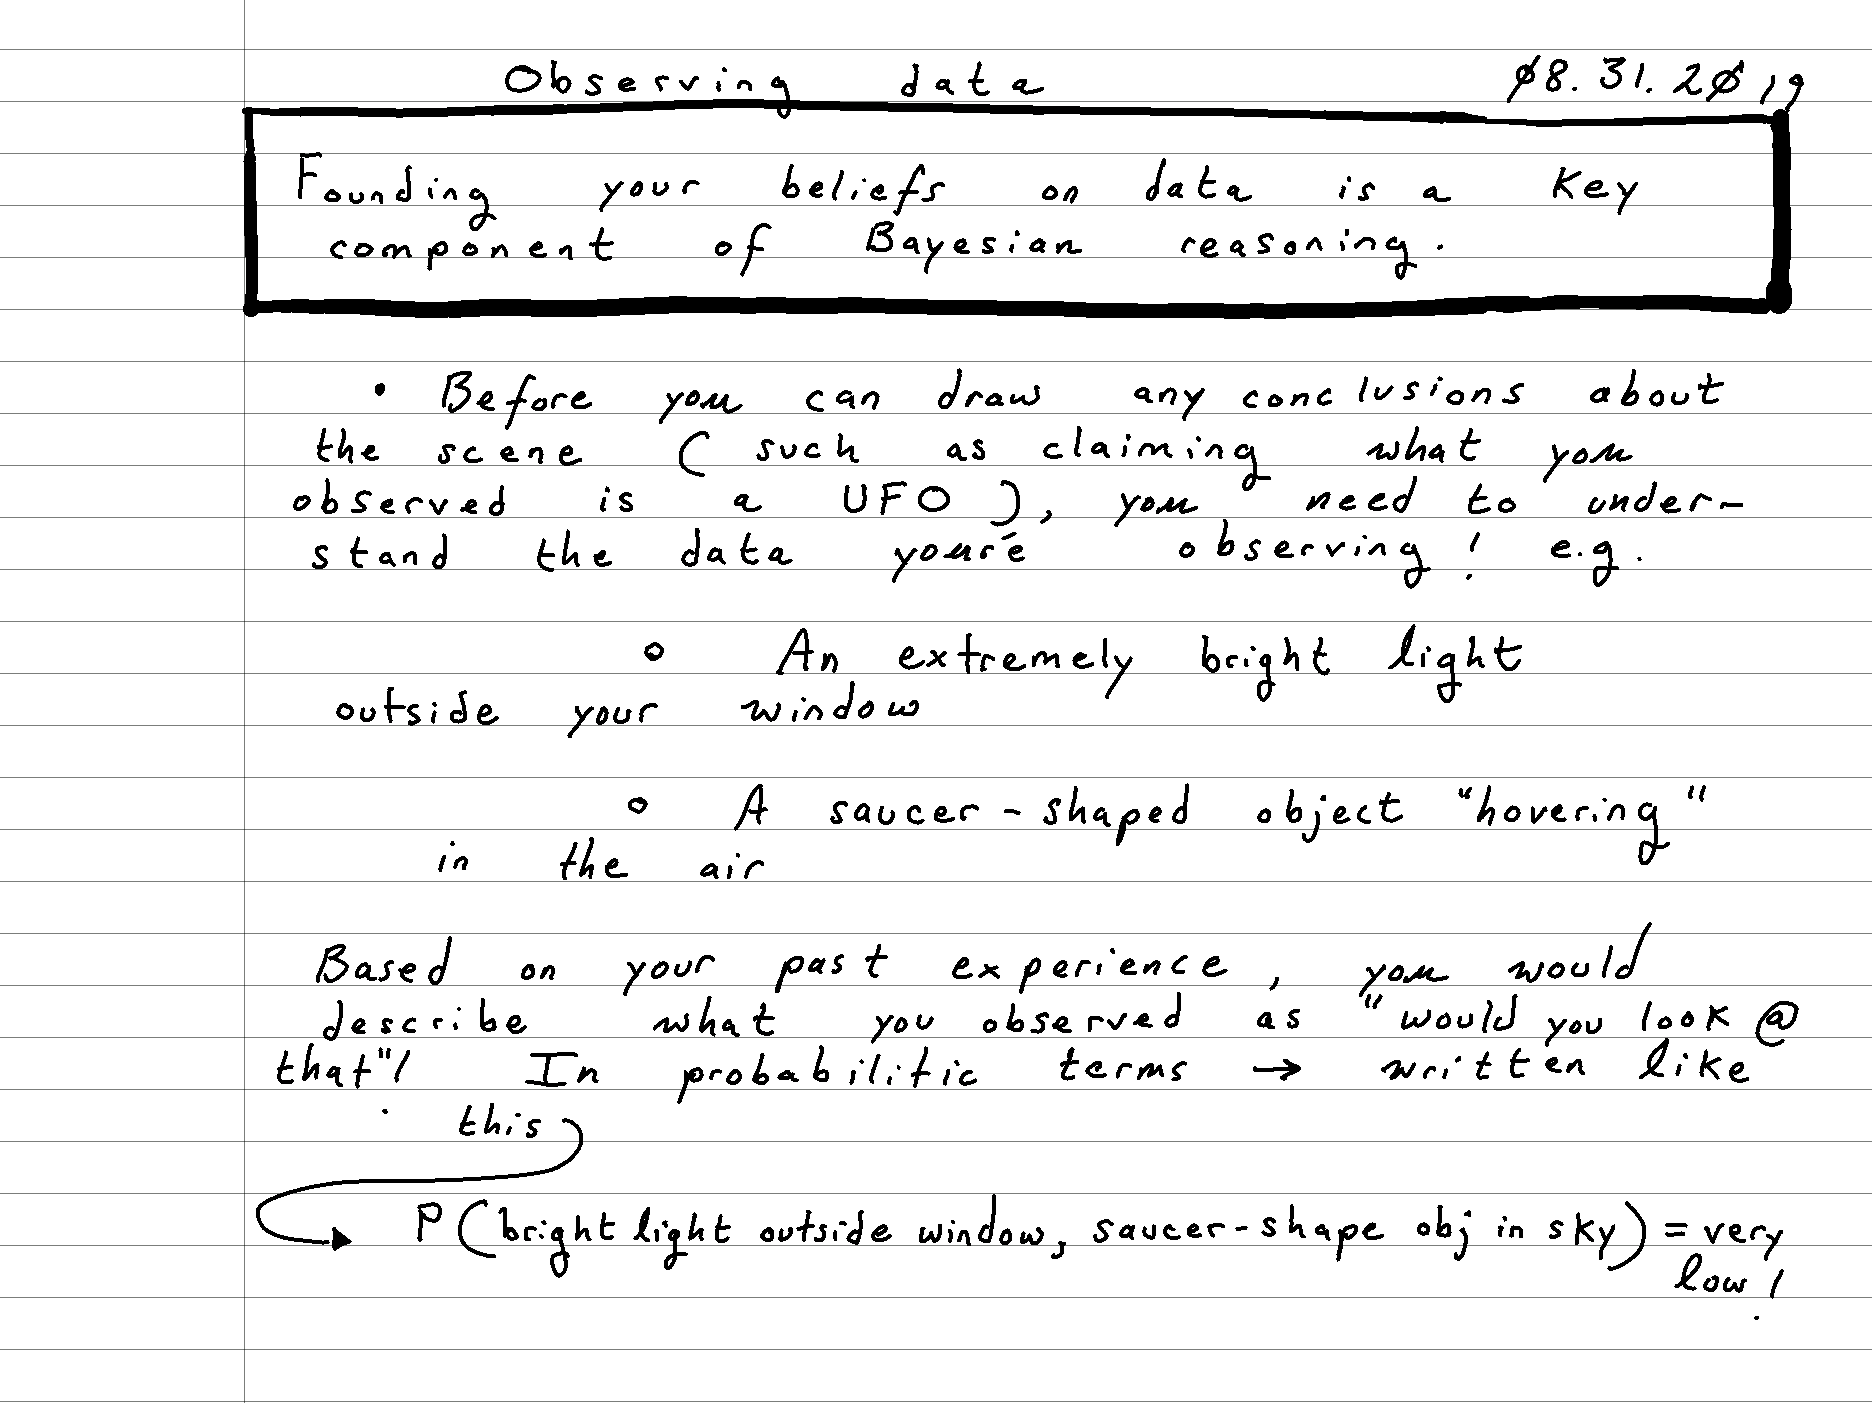 Observing data 08.31.2019
Founding your beliefs on data is a key
component of Bayesian reasoning.
• Before you can draw any conclusions about
the scene (such as claiming what you
observed is a UFO), you need to under-
stand the data you're observing! e.g.
○ An extremely bright light
outside your window
○ A saucer-shaped object "hovering"
in the air
Based on your past experience, you would
describe what you observed as "would you look @
that"! In probabilitic terms → written like
this
P(bright light outside window, saucer-shape obj in sky) = very
low!